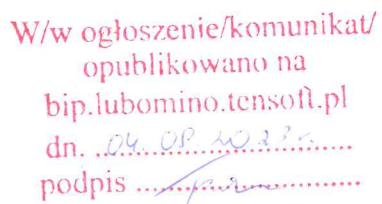 W/w ogłoszenie/komunikat/
opublikowano na
bip.lubomino.tensoft.pl
dn. 04. 08. 2023 r.
podpis